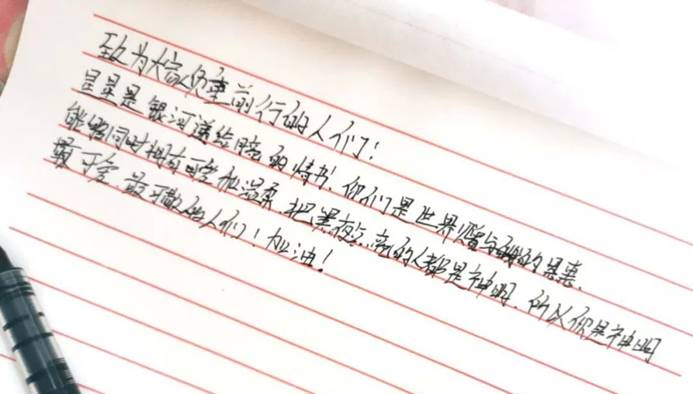 致为大家负重前行的人们:
星星是银河递给 的情书,你们是世界赠与我们的恩惠.
能够同时拥有 和温柔.把黑夜点亮的人都是神明.所以你是神明
最可 、最可敬的人们!加油!